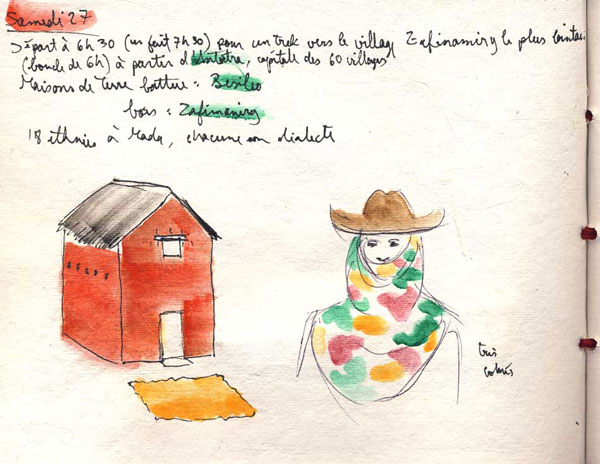 Samedi 27
Départ à 6h30 (en fait 7h30) pour un trek vers le village Zafimaniry le plus lointain
(boucle de 6h) à partir d'Antoetra, capitale des 60 villages
Maisons de Terre battue : Besileo
bois : Zafimaniry
18 ethnies à Mada, chacune son dialecte
très
colorés